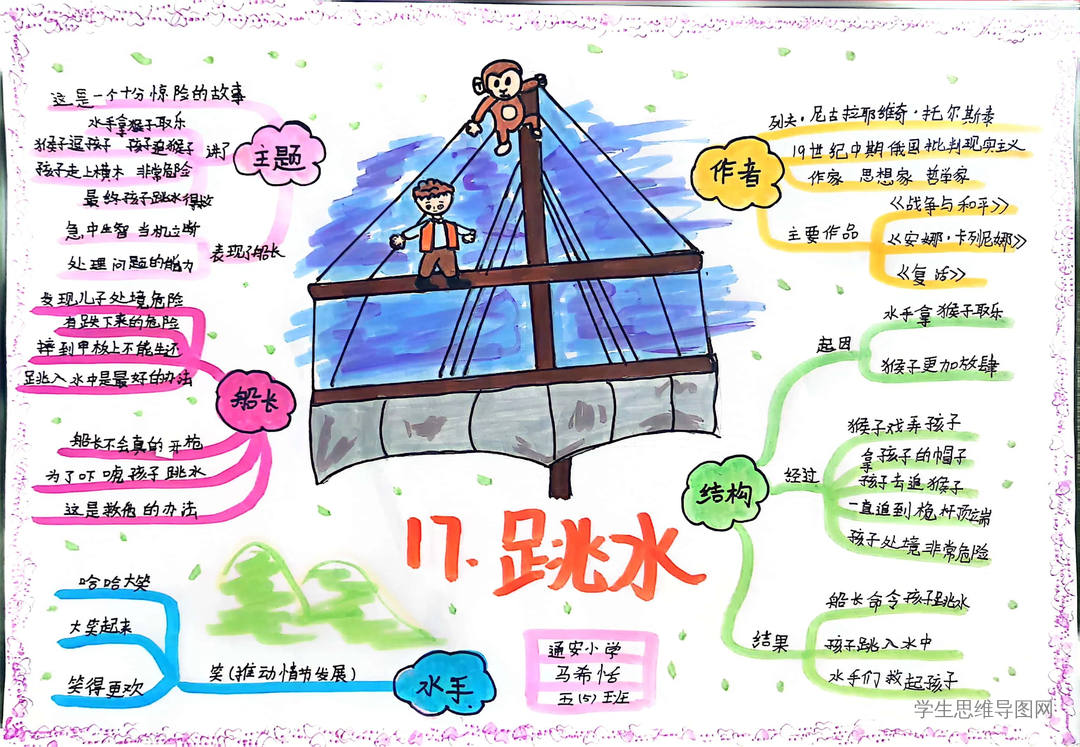 这是一个十分惊险的故事
水手拿猴子取乐
猴子逗孩子 孩子追猴子
孩子走上横木 非常危险
最终孩子跳水得救
讲了
主题
急中生智 当机立断
处理问题的能力
表现了船长
发现儿子处境危险
有跌下来的危险
摔到甲板上不能生还
跳入水中是最好的办法
船长
船长不会真的开枪
为了吓唬孩子跳水
这是救危的办法
哈哈大笑
大笑起来
笑得更欢
笑(推动情节发展)
水手
17.跳水
通安小学
马希恬
五(5)班
作者
列夫·尼古拉耶维奇·托尔斯泰
19世纪中期俄国批判现实主义
作家 思想家 哲学家
主要作品
《战争与和平》
《安娜·卡列尼娜》
《复活》
结构
起因
水手拿猴子取乐
猴子更加放肆
经过
猴子戏弄孩子
拿孩子的帽子
孩子去追猴子
一直追到桅杆顶端
孩子处境非常危险
结果
船长命令孩子跳水
孩子跳入水中
水手们救起孩子
学生思维导图网